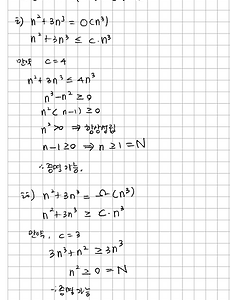 i) n² + 3n³ = O(n³)
n² + 3n³ ≤ c·n³
만약 c = 4
n² + 3n³ ≤ 4n³
n³ - n² ≥ 0
n²(n-1) ≥ 0
n²>0 ⇒ 항상성립
n-1≥0 ⇒ n≥1 = N
∴ 증명가능.
ii) n² + 3n³ = Ω(n³)
n² + 3n³ ≥ c·n³
만약, c = 3
3n³ + n² ≥ 3n³
n² ≥ 0 = N
∴ 증명가능